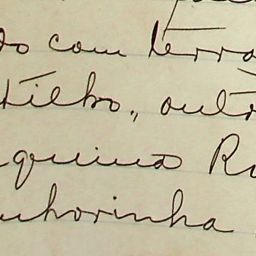 do com terra
stilho, outr
quina Ru
nhorinha